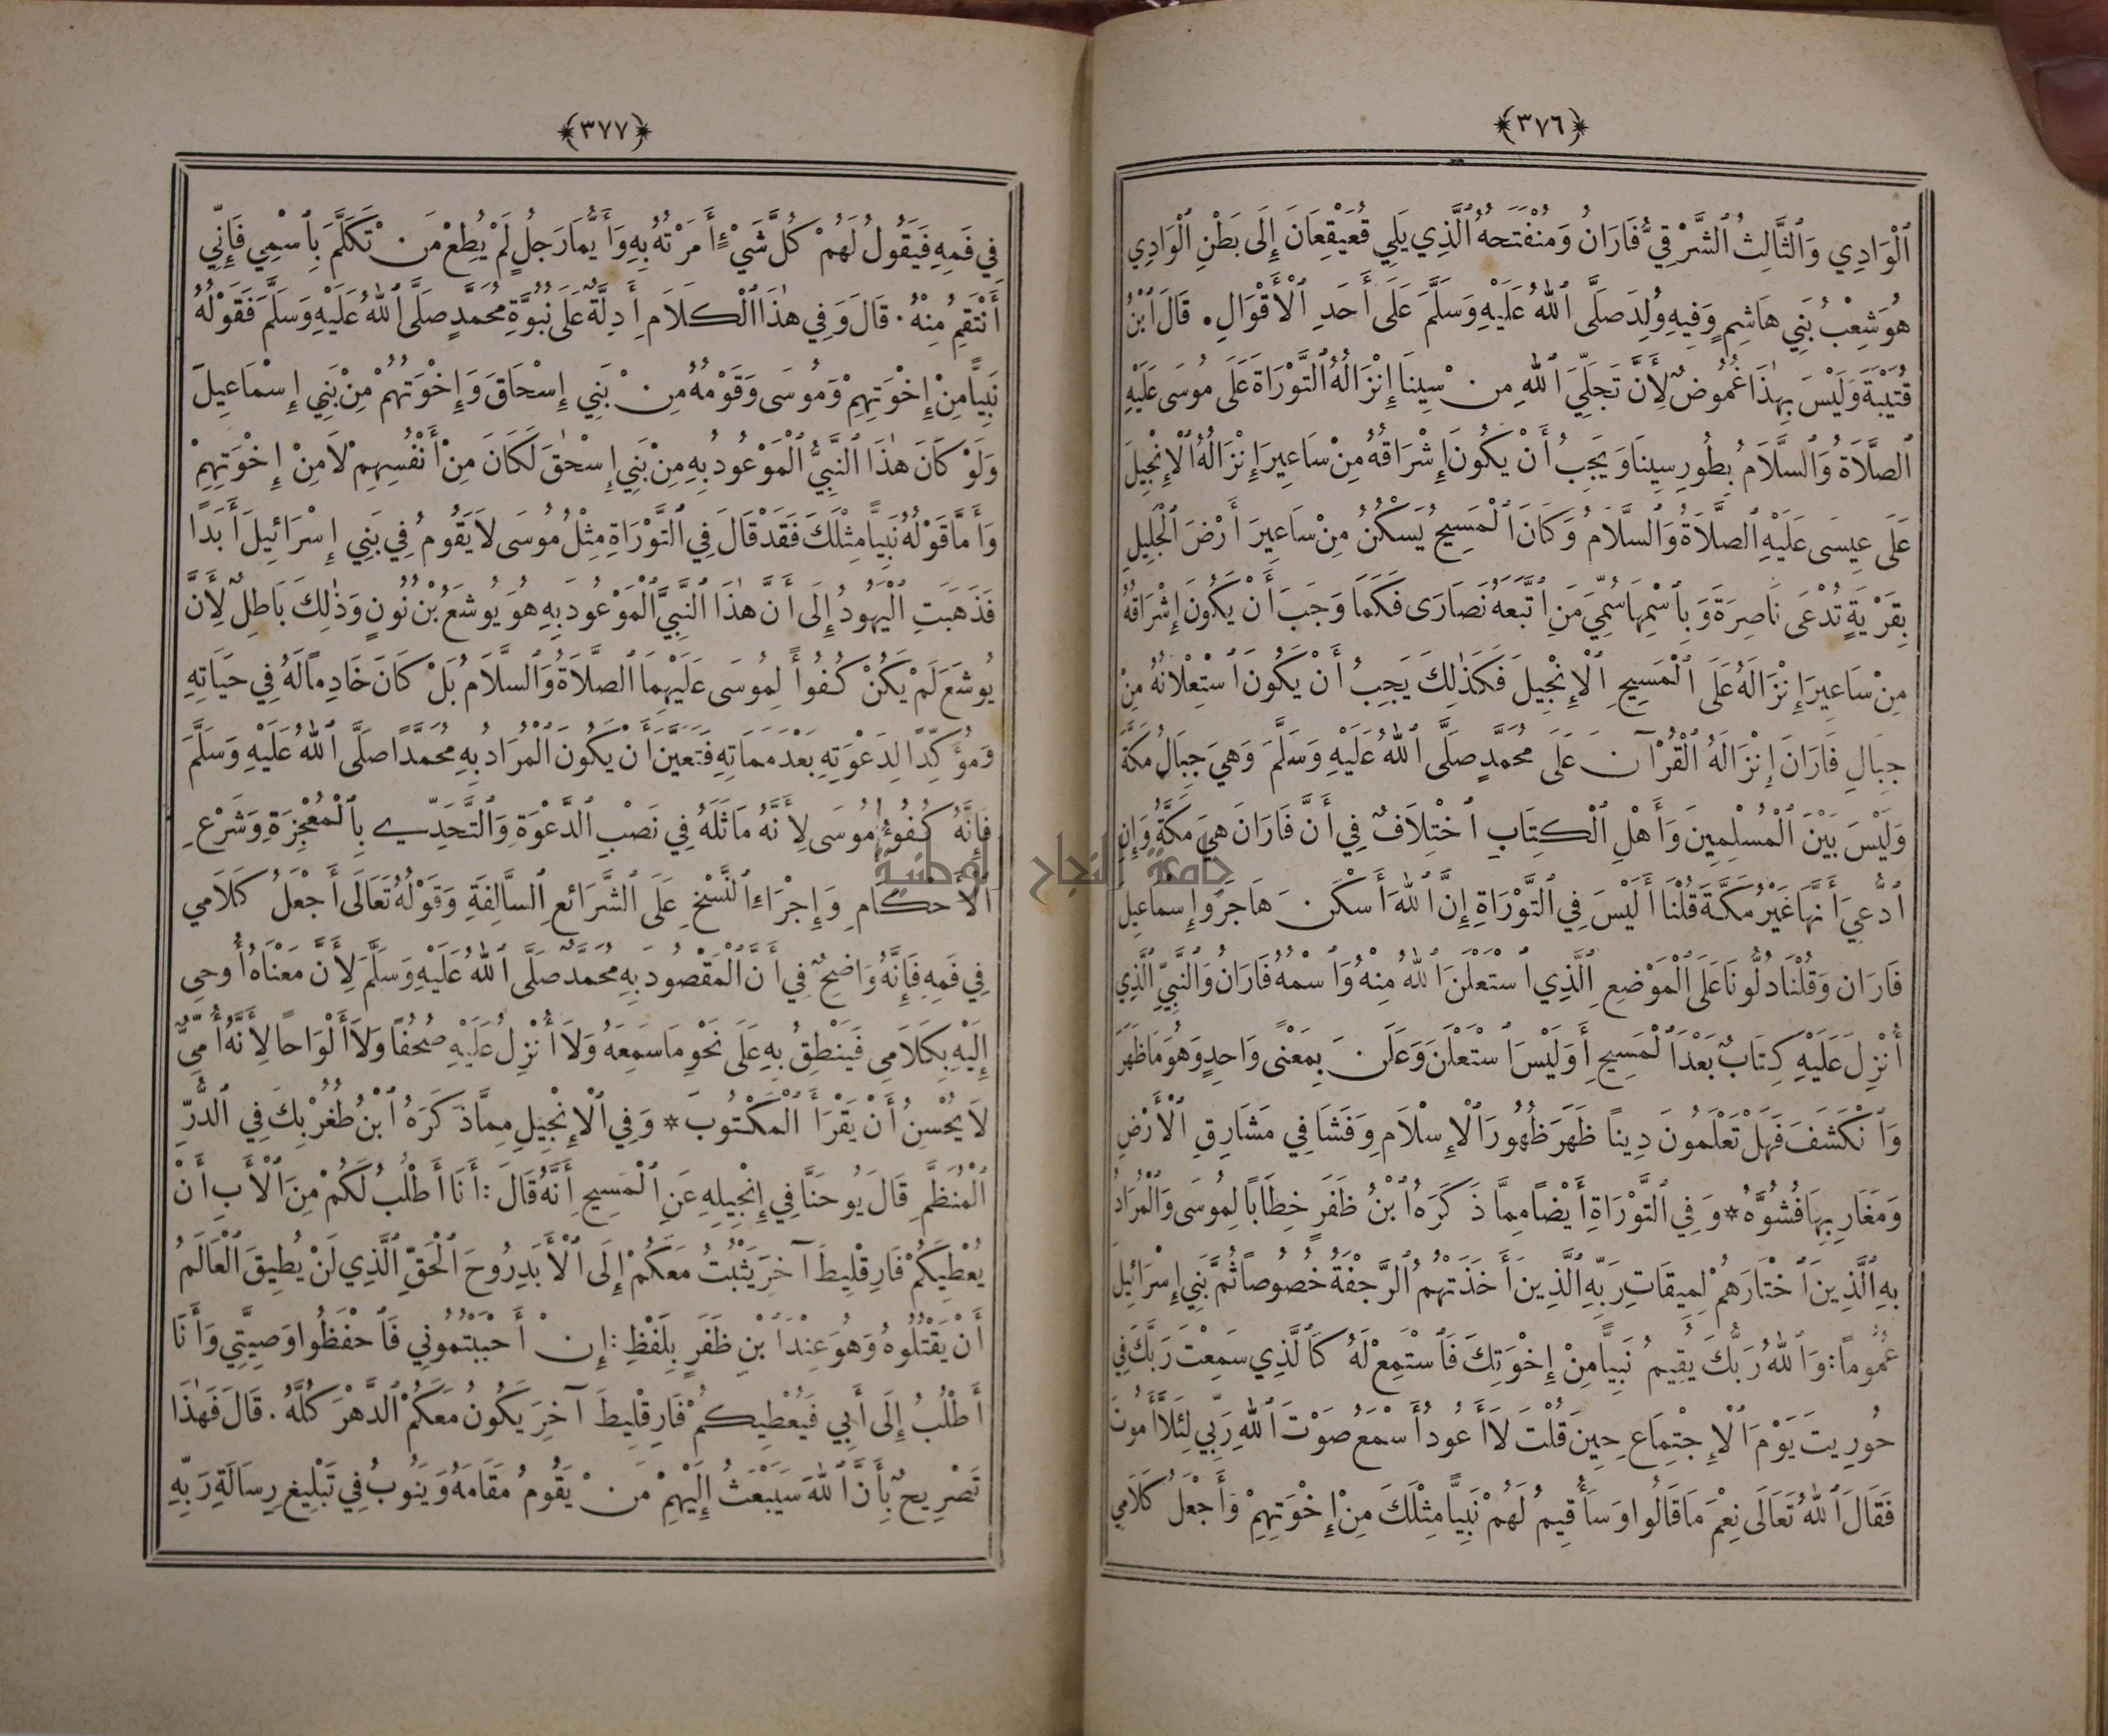 ﴿٣٧٦﴾
ٱلْوَادِي وَٱلثَّالِثُ ٱلشَّرْقِيُّ فَارَانُ وَمُنْفَتَحَهُ ٱلَّذِي يَلِي قُعَيْقِعَانَ إِلَى بَطْنِ ٱلْوَادِي
هُوَ شِعْبُ بَنِي هَاشِمٍ وَفِيهِ وُلِدَ صَلَّى ٱللهُ عَلَيْهِ وَسَلَّمَ عَلَى أَحَدِ ٱلْأَقْوَالِ. قَالَ ٱبْنُ
قُتَيْبَةَ وَلَيْسَ بِهٰذَا غُمُوضٌ لِأَنَّ تَجَلِّيَ ٱللهِ مِنْ سِينَا إِنْزَالُهُ ٱلتَّوْرَاةَ عَلَى مُوسَى عَلَيْهِ
ٱلصَّلَاةُ وَٱلسَّلَامُ بِطُورِ سِينَا وَيَجِبُ أَنْ يَكُونَ إِشْرَاقُهُ مِنْ سَاعِيرَ إِنْزَالُهُ ٱلْإِنْجِيلَ
عَلَى عِيسَى عَلَيْهِ ٱلصَّلَاةُ وَٱلسَّلَامُ وَكَانَ ٱلْمَسِيحُ يَسْكُنُ مِنْ سَاعِيرَ أَرْضَ ٱلْجَلِيلِ
بِقَرْيَةٍ تُدْعَى نَاصِرَةَ وَبِٱسْمِهَا سُمِّيَ مَنِ ٱتَّبَعَهُ نَصَارَى فَكَمَا وَجَبَ أَنْ يَكُونَ إِشْرَاقُهُ
مِنْ سَاعِيرَ إِنْزَالَهُ عَلَى ٱلْمَسِيحِ ٱلْإِنْجِيلَ فَكَذٰلِكَ يَجِبُ أَنْ يَكُونَ ٱسْتِعْلَانُهُ مِنْ
جِبَالِ فَارَانَ إِنْزَالَهُ ٱلْقُرْآنَ عَلَى مُحَمَّدٍ صَلَّى ٱللهُ عَلَيْهِ وَسَلَّمَ وَهِيَ جِبَالُ مَكَّةَ
وَلَيْسَ بَيْنَ ٱلْمُسْلِمِينَ وَأَهْلِ ٱلْكِتَابِ ٱخْتِلَافٌ فِي أَنَّ فَارَانَ هِيَ مَكَّةُ وَإِنِ
ٱدُّعِيَ أَنَّهَا غَيْرُ مَكَّةَ قُلْنَا أَلَيْسَ فِي ٱلتَّوْرَاةِ إِنَّ ٱللهَ أَسْكَنَ هَاجَرَ وَإِسْمَاعِيلَ
فَارَانَ وَقُلْنَا دُلُّونَا عَلَى ٱلْمَوْضِعِ ٱلَّذِي ٱسْتَعْلَنَ ٱللهُ مِنْهُ وَٱسْمُهُ فَارَانُ وَٱلنَّبِيِّ ٱلَّذِي
أُنْزِلَ عَلَيْهِ كِتَابٌ بَعْدَ ٱلْمَسِيحِ أَوَلَيْسَ ٱسْتَعْلَنَ وَعَلَنَ بِمَعْنًى وَاحِدٍ وَهُوَ مَا ظَهَرَ
وَٱنْكَشَفَ فَهَلْ تَعْلَمُونَ دِيناً ظَهَرَ ظُهُورَ ٱلْإِسْلَامِ وَفَشَا فِي مَشَارِقِ ٱلْأَرْضِ
وَمَغَارِبِهَا فُشُوَّهُ * وَفِي ٱلتَّوْرَاةِ أَيْضاً مِمَّا ذَكَرَهُ ٱبْنُ ظَفَرٍ خِطَابًا لِمُوسَى وَٱلْمُرَادُ
بِهِ ٱلَّذِينَ ٱخْتَارَهُمْ لِمِيقَاتِ رَبِّهِ ٱلَّذِينَ أَخَذَتْهُمُ ٱلرَّجْفَةُ خُصُوصاً ثُمَّ بَنِي إِسْرَائِيلَ
عُمُوماً: وَٱللهُ رَبُّكَ يُقِيمُ نَبِيًّا مِنْ إِخْوَتِكَ فَٱسْتَمِعْ لَهُ كَٱلَّذِي سَمِعْتَ رَبَّكَ فِي
حُورِيتَ يَوْمَ ٱلْاِجْتِمَاعِ حِينَ قُلْتَ لَا أَعُودُ أَسْمَعُ صَوْتَ ٱللهِ رَبِّي لِئَلَّا أَمُوتَ
فَقَالَ ٱللهُ تَعَالَى نِعْمَ مَا قَالُوا وَسَأُقِيمُ لَهُمْ نَبِيًّا مِثْلَكَ مِنْ إِخْوَتِهِمْ وَأَجْعَلُ كَلَامِي
﴿٣٧٧﴾
فِي فَمِهِ فَيَقُولُ لَهُمْ كُلَّ شَيْءٍ أَمَرْتُهُ بِهِ وَأَيُّمَا رَجُلٍ لَمْ يُطِعْ مَنْ تَكَلَّمَ بِٱسْمِي فَإِنِّي
أَنْتَقِمُ مِنْهُ. قَالَ وَفِي هٰذَا ٱلْكَلَامِ أَدِلَّةٌ عَلَى نُبُوَّةِ مُحَمَّدٍ صَلَّى ٱللهُ عَلَيْهِ وَسَلَّمَ فَقَوْلُهُ
نَبِيًّا مِنْ إِخْوَتِهِمْ وَمُوسَى وَقَوْمُهُ مِنْ بَنِي إِسْحَاقَ وَإِخْوَتُهُمْ مِنْ بَنِي إِسْمَاعِيلَ
وَلَوْ كَانَ هٰذَا ٱلنَّبِيُّ ٱلْمَوْعُودُ بِهِ مِنْ بَنِي إِسْحٰقَ لَكَانَ مِنْ أَنْفُسِهِمْ لَا مِنْ إِخْوَتِهِمْ
وَأَمَّا قَوْلُهُ نَبِيًّا مِثْلَكَ فَقَدْ قَالَ فِي ٱلتَّوْرَاةِ مِثْلُ مُوسَى لَا يَقُومُ فِي بَنِي إِسْرَائِيلَ أَبَدًا
فَذَهَبَتِ ٱلْيَهُودُ إِلَى أَنَّ هٰذَا ٱلنَّبِيَّ ٱلْمَوْعُودَ بِهِ هُوَ يُوشَعُ بْنُ نُونٍ وَذٰلِكَ بَاطِلٌ لِأَنَّ
يُوشَعَ لَمْ يَكُنْ كُفُوأً لِمُوسَى عَلَيْهِمَا ٱلصَّلَاةُ وَٱلسَّلَامُ بَلْ كَانَ خَادِمًا لَهُ فِي حَيَاتِهِ
وَمُؤَكِّدًا لِدَعْوَتِهِ بَعْدَ مَمَاتِهِ فَتَعَيَّنَ أَنْ يَكُونَ ٱلْمُرَادُ بِهِ مُحَمَّدًا صَلَّى ٱللهُ عَلَيْهِ وَسَلَّمَ
فَإِنَّهُ كُفُوءُ مُوسَى لِأَنَّهُ مَاثَلَهُ فِي نَصْبِ ٱلدَّعْوَةِ وَٱلتَّحَدِّي بِٱلْمُعْجِزَةِ وَشَرْعِ
ٱلْأَحْكَامِ وَإِجْرَاءِ ٱلنَّسْخِ عَلَى ٱلشَّرَائِعِ ٱلسَّالِفَةِ وَقَوْلُهُ تَعَالَى أَجْعَلُ كَلَامِي
فِي فَمِهِ فَإِنَّهُ وَاضِحٌ فِي أَنَّ ٱلْمَقْصُودَ بِهِ مُحَمَّدٌ صَلَّى ٱللهُ عَلَيْهِ وَسَلَّمَ لِأَنَّ مَعْنَاهُ أُوحِي
إِلَيْهِ بِكَلَامِي فَيَنْطِقُ بِهِ عَلَى نَحْوِ مَا سَمِعَهُ وَلَا أُنْزِلُ عَلَيْهِ صُحُفًا وَلَا أَلْوَاحًا لِأَنَّهُ أُمِّيٌّ
لَا يُحْسِنُ أَنْ يَقْرَأَ ٱلْمَكْتُوبَ * وَفِي ٱلْإِنْجِيلِ مِمَّا ذَكَرَهُ ٱبْنُ طُغْرُبِكَ فِي ٱلدُّرِّ
ٱلْمُنَظَّمِ قَالَ يُوحَنَّا فِي إِنْجِيلِهِ عَنِ ٱلْمَسِيحِ أَنَّهُ قَالَ: أَنَا أَطْلُبُ لَكُمْ مِنَ ٱلْأَبِ أَنْ
يُعْطِيَكُمْ فَارِقْلِيطَ آخَرَ يَثْبُتُ مَعَكُمْ إِلَى ٱلْأَبَدِ رُوحَ ٱلْحَقِّ ٱلَّذِي لَنْ يُطِيقَ ٱلْعَالَمُ
أَنْ يَقْتُلُوهُ وَهُوَ عِنْدَ ٱبْنِ ظَفَرٍ بِلَفْظِ: إِنْ أَحْبَبْتُمُونِي فَٱحْفَظُوا وَصِيَّتِي وَأَنَا
أَطْلُبُ إِلَى أَبِي فَيُعْطِيكُمْ فَارِقِلِيطَ آخَرَ يَكُونُ مَعَكُمُ ٱلدَّهْرَ كُلَّهُ. قَالَ فَهٰذَا
تَصْرِيحٌ بِأَنَّ ٱللهَ سَيَبْعَثُ إِلَيْهِمْ مَنْ يَقُومُ مَقَامَهُ وَيَنُوبُ فِي تَبْلِيغِ رِسَالَةِ رَبِّهِ
جامعة النجاح الوطنية